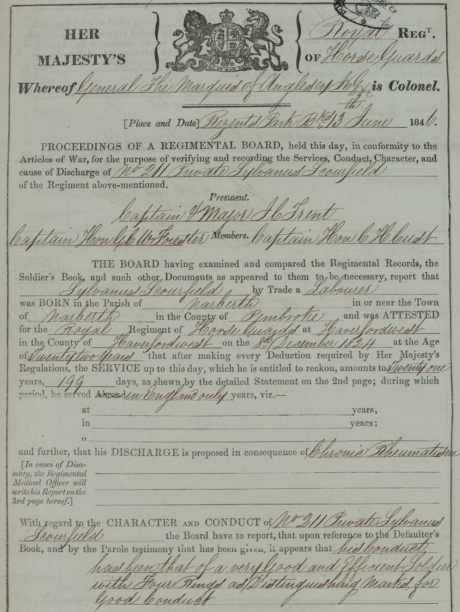 HER
MAJESTY'S
Royal REGT.
OF Horse Guards
Whereof General The Marquis of Anglesey K.G. &c is Colonel.
[Place and Date] Regents Park Bks 13th June 1846.
PROCEEDINGS OF A REGIMENTAL BOARD, held this day, in conformity to the
Articles of War, for the purpose of verifying and recording the Services, Conduct, Character, and
cause of Discharge of No 211 Private Sylvanus Scourfield
of the Regiment above-mentioned.
President.
Captain & Major J C Trent
Captain Hon G C W Forester Members. Captain Hon C H Cust
THE BOARD having examined and compared the Regimental Records, the
Soldier's Book, and such other Documents as appeared to them to be necessary, report that
Sylvanus Scourfield by Trade a Labourer
was BORN in the Parish of Narberth in or near the Town
of Narberth in the County of Pembroke and was ATTESTED
for the Royal Regiment of Horse Guards at Haverfordwest
in the County of Haverfordwest on the 8th December 1824 at the Age
of Twenty two Years that after making every Deduction required by Her Majesty's
Regulations, the SERVICE up to this day, which he is entitled to reckon, amounts to Twenty one
years, 199 days, as shewn by the detailed Statement on the 2nd page; during which
period, he served Abroad in England only years, viz.—
at years,
in years;
„
and further, that his DISCHARGE is proposed in consequence of Chronic Rheumatism
[In cases of Disa-
bility, the Regimental
Medical Officer will
write his Report on the
3rd page hereof.]
With regard to the CHARACTER AND CONDUCT of No 211 Private Sylvanus
Scourfield the Board have to report, that upon reference to the Defaulter's
Book, and by the Parole testimony that has been given, it appears that his Conduct
has been that of a very Good and Efficient Soldier
with Four Rings as Distinguishing Marks for
Good Conduct